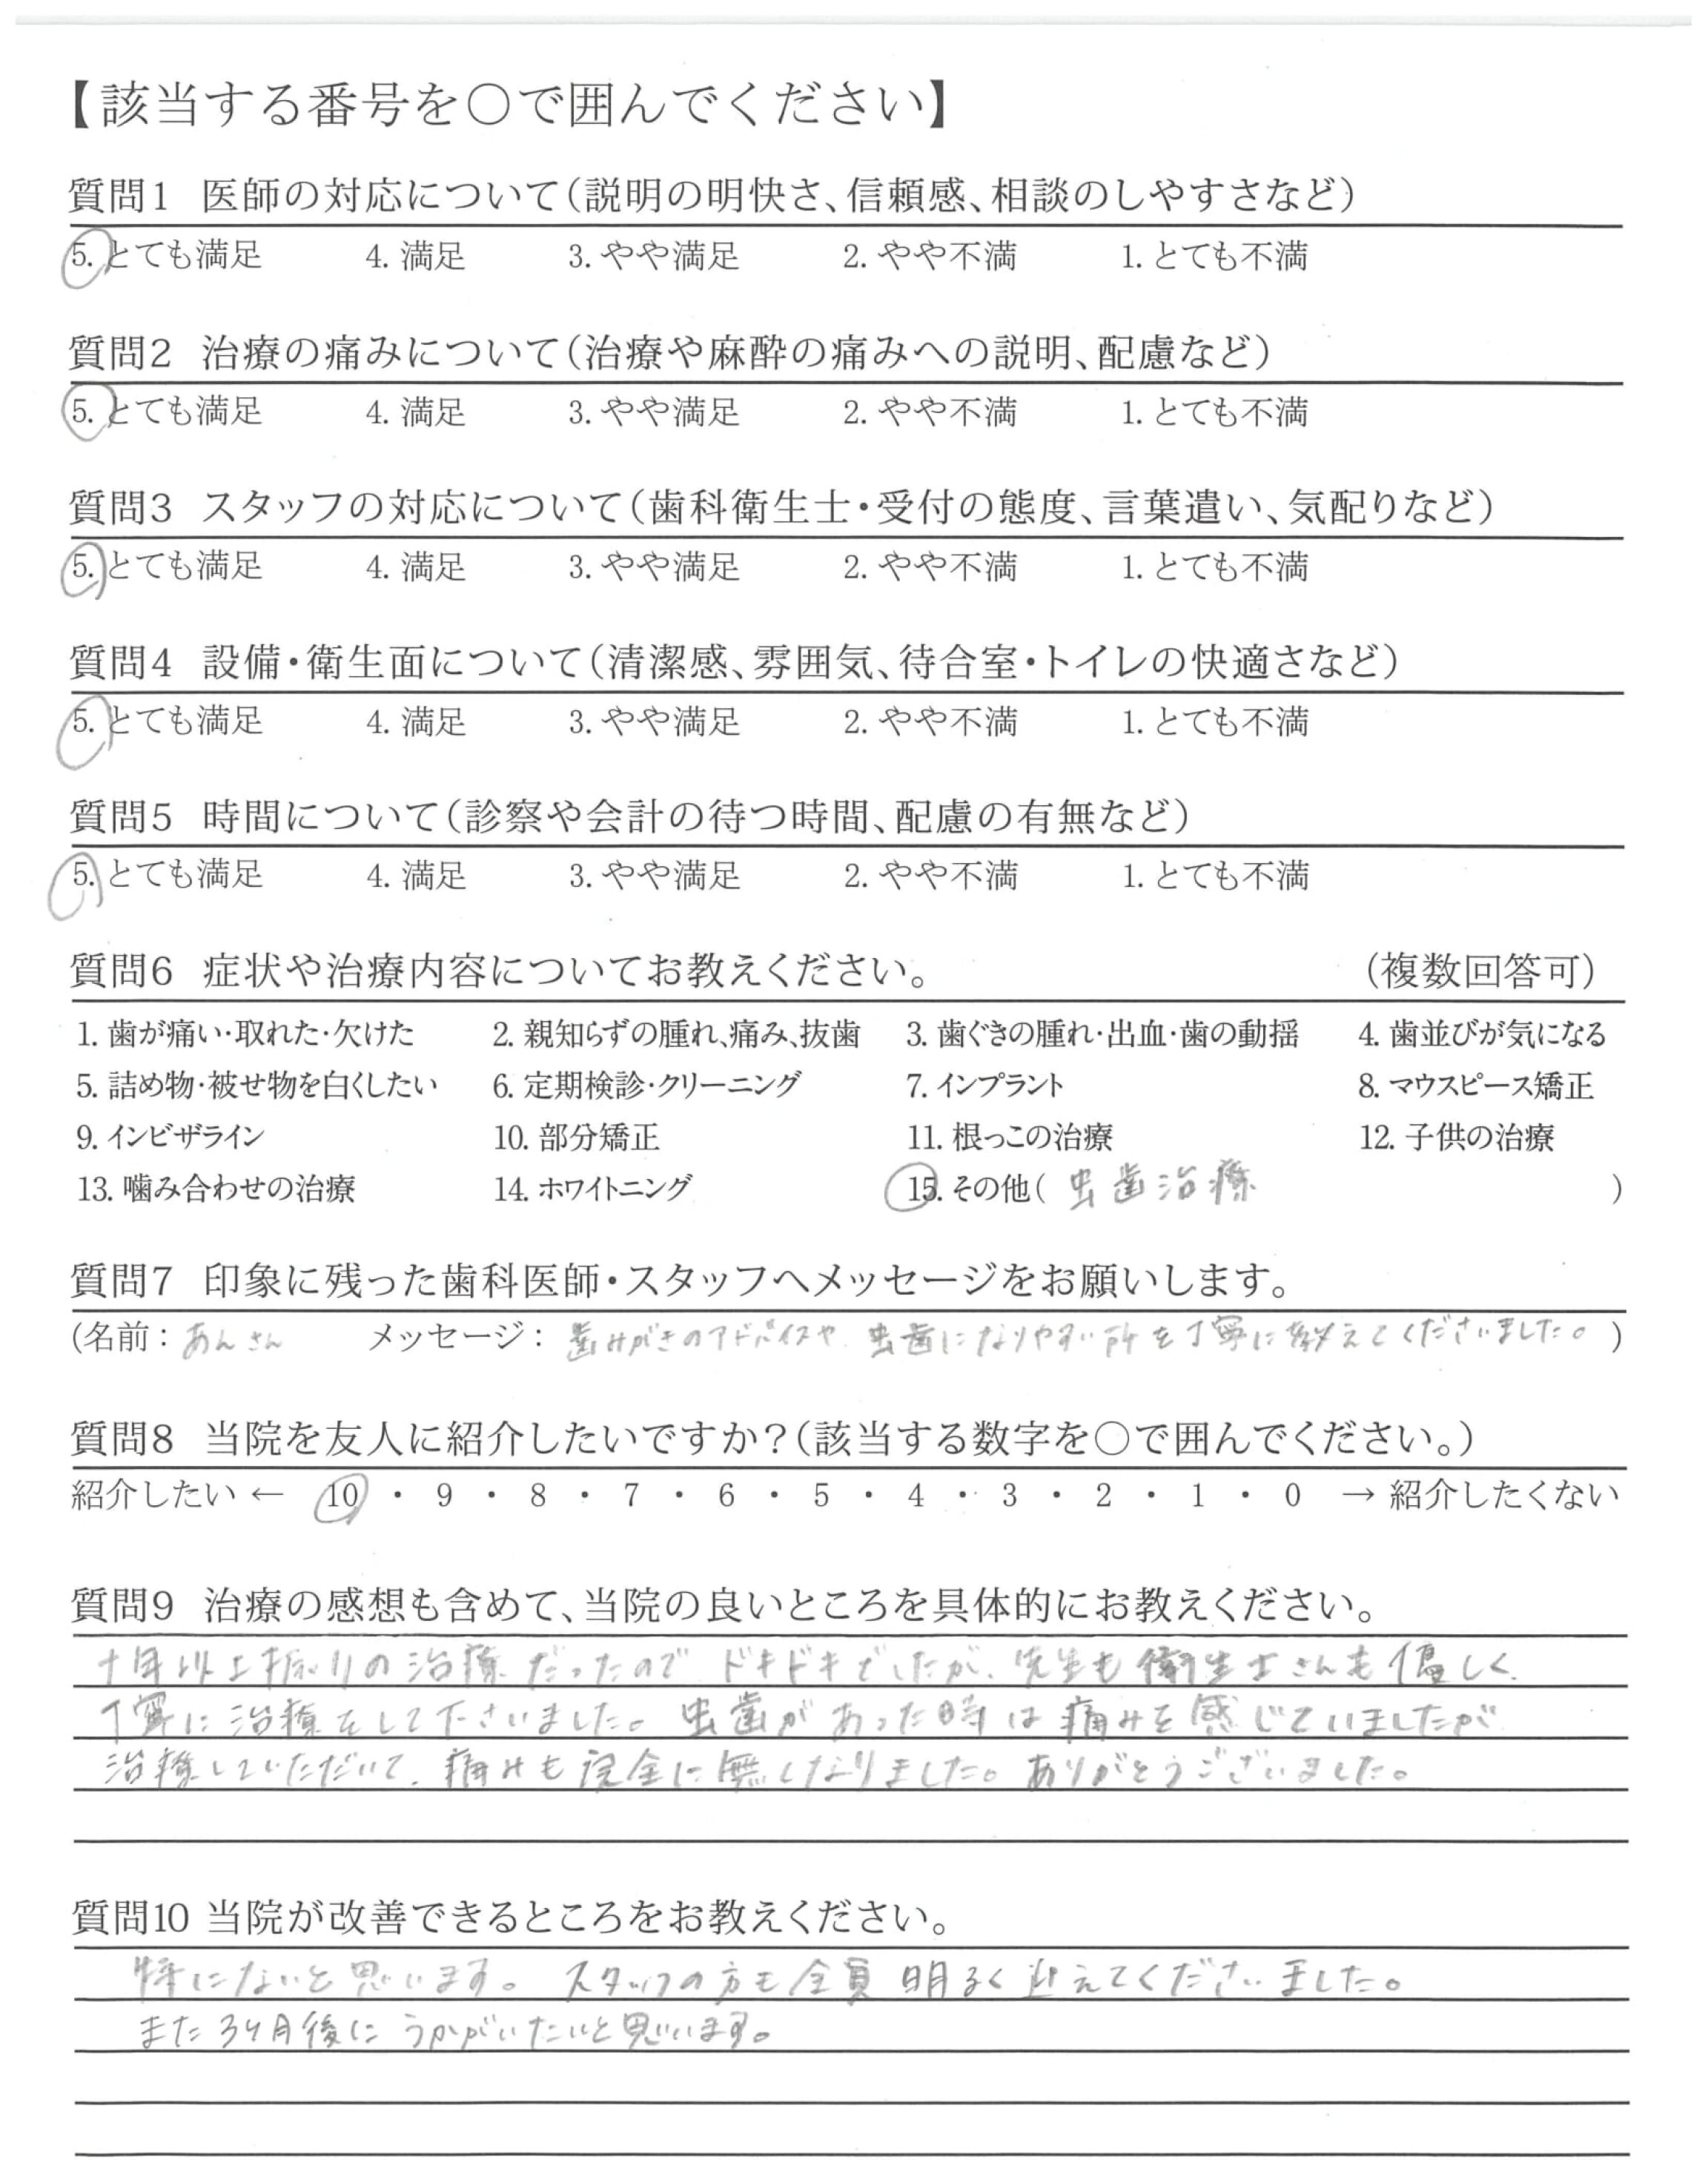 【該当する番号を○で囲んでください】
質問1 医師の対応について（説明の明快さ、信頼感、相談のしやすさなど）
5. とても満足 4. 満足 3. やや満足 2. やや不満 1. とても不満
質問2 治療の痛みについて（治療や麻酔の痛みへの説明、配慮など）
5. とても満足 4. 満足 3. やや満足 2. やや不満 1. とても不満
質問3 スタッフの対応について（歯科衛生士・受付の態度、言葉遣い、気配りなど）
5. とても満足 4. 満足 3. やや満足 2. やや不満 1. とても不満
質問4 設備・衛生面について（清潔感、雰囲気、待合室・トイレの快適さなど）
5. とても満足 4. 満足 3. やや満足 2. やや不満 1. とても不満
質問5 時間について（診察や会計の待つ時間、配慮の有無など）
5. とても満足 4. 満足 3. やや満足 2. やや不満 1. とても不満
質問6 症状や治療内容についてお教えください。 （複数回答可）
1. 歯が痛い・取れた・欠けた 2. 親知らずの腫れ、痛み、抜歯 3. 歯ぐきの腫れ・出血・歯の動揺 4. 歯並びが気になる
5. 詰め物・被せ物を白くしたい 6. 定期検診・クリーニング 7. インプラント 8. マウスピース矯正
9. インビザライン 10. 部分矯正 11. 根っこの治療 12. 子供の治療
13. 噛み合わせの治療 14. ホワイトニング 15. その他（ 虫歯治療 ）
質問7 印象に残った歯科医師・スタッフへメッセージをお願いします。
（名前： あんさん メッセージ： 歯みがきのアドバイスや、虫歯になりやすい所を丁寧に教えてくださいました。）
質問8 当院を友人に紹介したいですか？（該当する数字を○で囲んでください。）
紹介したい ← 10 ・ 9 ・ 8 ・ 7 ・ 6 ・ 5 ・ 4 ・ 3 ・ 2 ・ 1 ・ 0 → 紹介したくない
質問9 治療の感想も含めて、当院の良いところを具体的にお教えください。
十年以上振りの治療だったので、ドキドキでしたが、先生も衛生士さんも優しく、
丁寧に治療をして下さいました。虫歯があった時は痛みを感じていましたが
治療していただいて、痛みも完全に無くなりました。ありがとうございました。
質問10 当院が改善できるところをお教えください。
特にないと思います。スタッフの方も全員明るく迎えてくださいました。
また3ヶ月後にうかがいたいと思います。